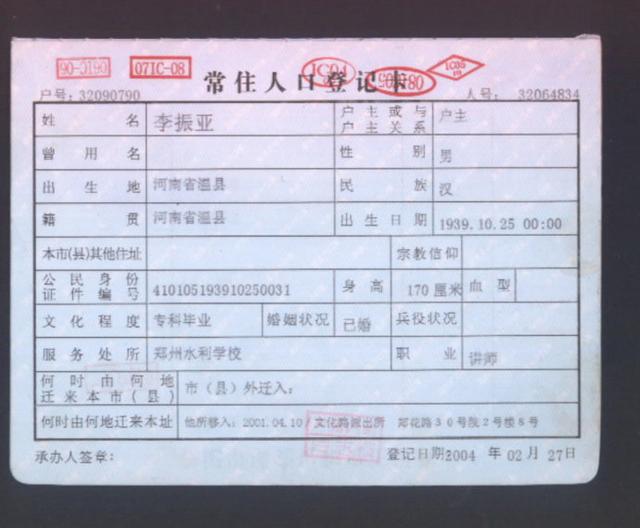 90-0190 07IC-08 IC04 IC05
常住人口登记卡
户号: 32090790 人号: 32064834
姓名 李振亚 户主或与户主关系 户主
曾用名 性别 男
出生地 河南省温县 民族 汉
籍贯 河南省温县 出生日期 1939.10.25 00:00
本市(县)其他住址 宗教信仰
公民身份证件编号 410105193910250031 身高 170 厘米 血型
文化程度 专科毕业 婚姻状况 已婚 兵役状况
服务处所 郑州水利学校 职业 讲师
何时由何地迁来本市(县) 市（县）外迁入:
何时由何地迁来本址 他所移入: 2001.04.10/文化路派出所 郑花路30号院2号楼8号
承办人签章: 登记日期:2004 年 02 月 27日